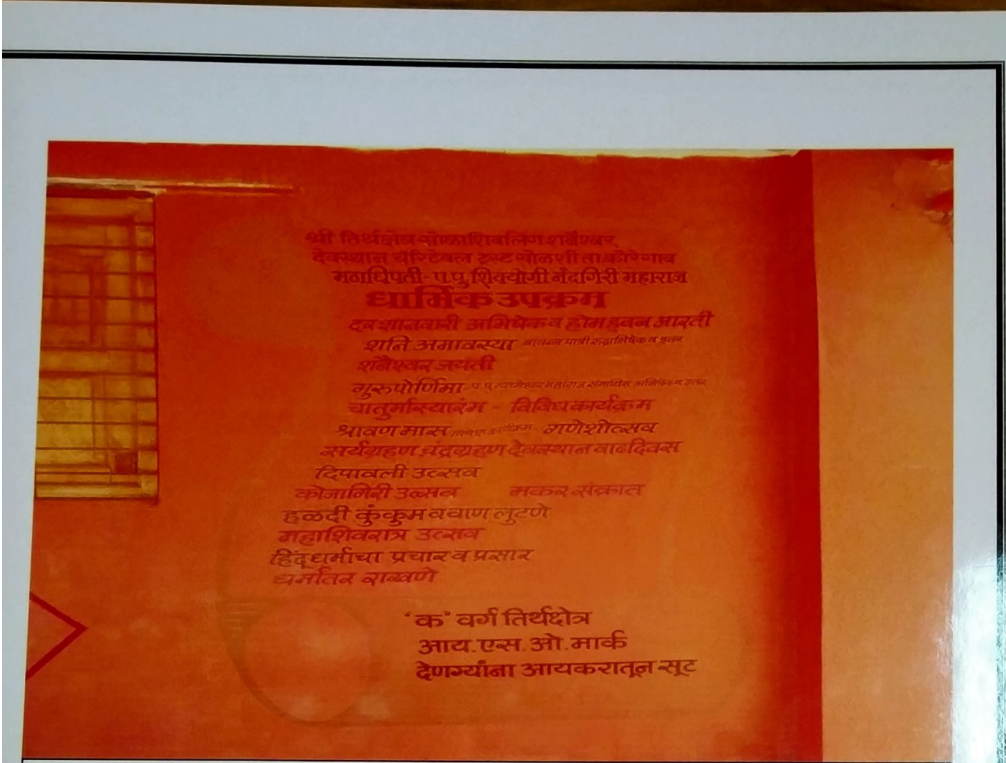 श्री तिर्थक्षेत्र सोळाशिवलिंग शनैश्वर
देवस्थान चॅरिटेबल ट्रस्ट चोळशी ता कोरेगाव
मठाधिपती- प.पु शिवयोगी नंदगिरी महाराज
धार्मिक उपक्रम
दर शनिवारी अभिषेक व होमहवन आरती
शनि अमावस्या रुद्राभिषेक व हवन
शनैश्वर जयंती
गुरुपोर्णिमा-
चातुर्मास्यारंभ - विविध कार्यक्रम
श्रावण मास गणेशोत्सव
सर्यग्रहण चंद्रग्रहण देवस्थान वाढदिवस
दिपावली उत्सव
कोजागिरी उत्सव मकर संक्रात
हळदी कुंकुम व वाण लुटणे
महाशिवरात्र उत्सव
हिंदू धर्माचा प्रचार व प्रसार
धर्मांतर राखणे
'क' वर्ग तिर्थक्षेत्र
आय.एस.ओ.मार्क
देणग्यांना आयकरातून सूट